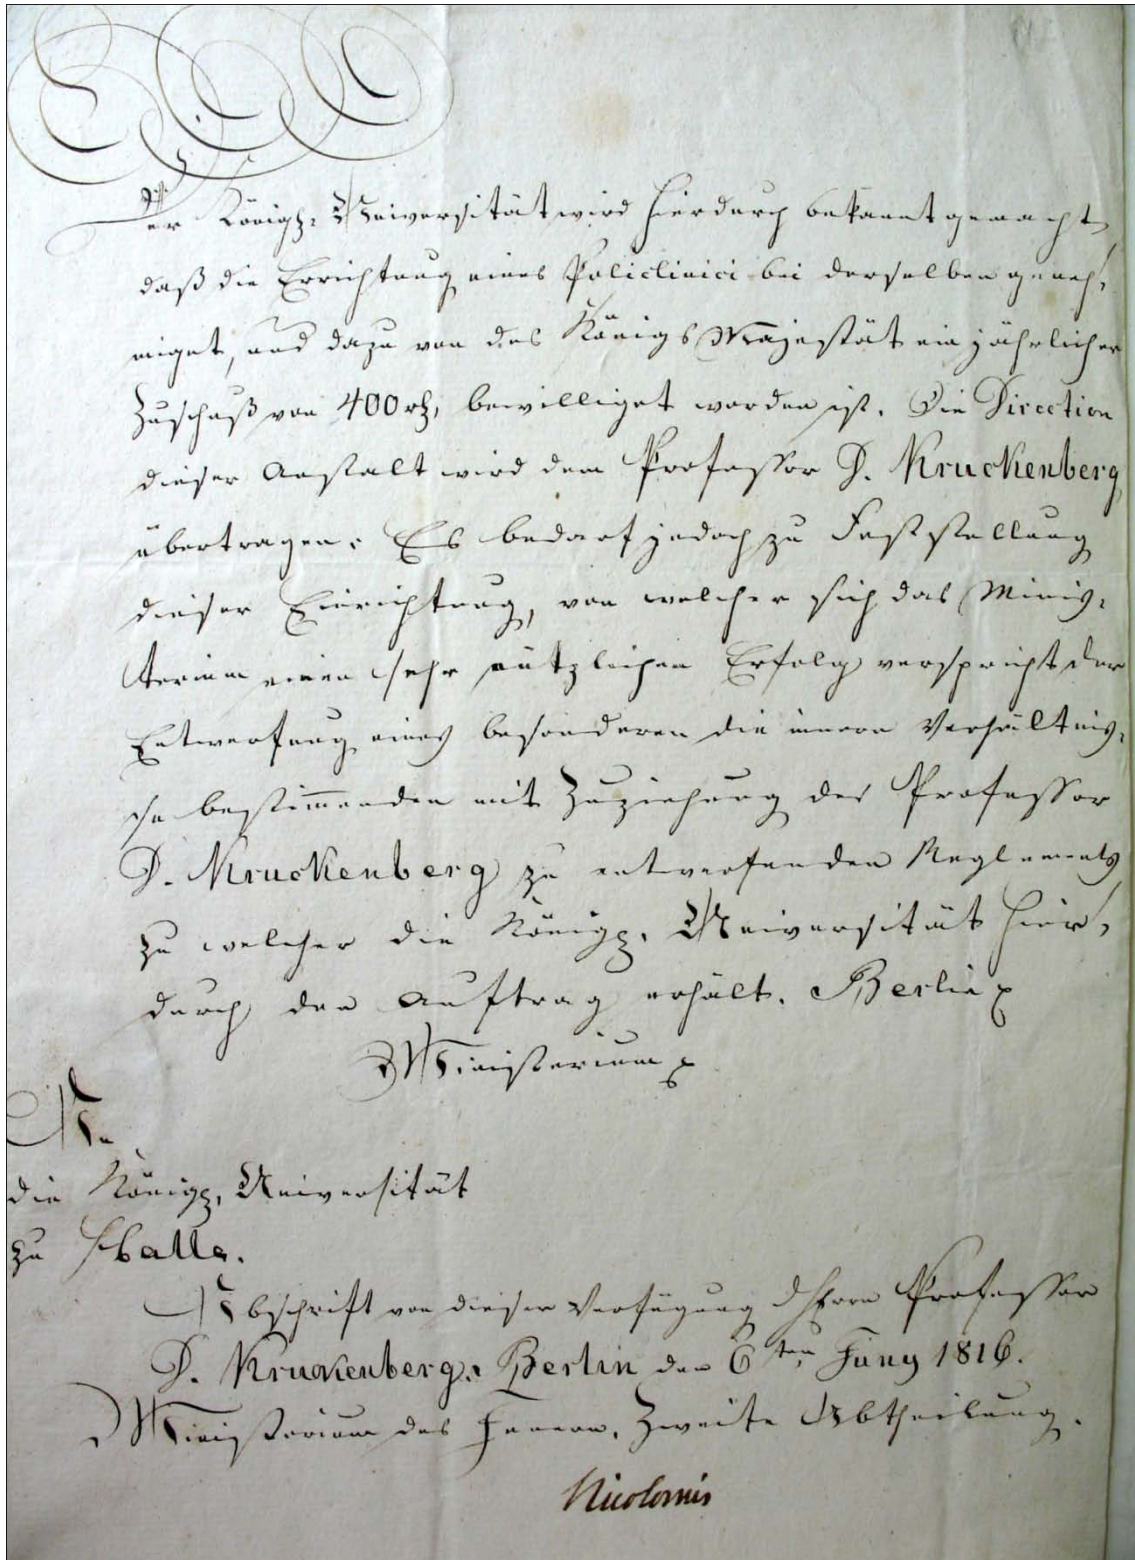 Der Königl. Universität wird hierdurch bekannt gemacht
daß die Errichtung eines Policlinici bei derselben geneh-
miget, und dazu von des Königs Majestät ein jährlicher
Zuschuß von 400 rtl. bewilliget worden ist. Die Direction
dieser Anstalt wird dem Professor D. Kruckenberg
übertragen. Es bedarf jedoch zu Feststellung
dieser Einrichtung, von welcher sich das Minis-
terium einen sehr nützlichen Erfolg verspricht der
Entwerfung eines besonderen die innern Verhältnis-
se bestimmenden mit Zuziehung des Professor
D. Kruckenberg zu entwerfenden Reglements
zu welcher die Königl. Universität hier-
durch den Auftrag erhält. Berlin
Ministerium
An
die Königl. Universität
zu Halle.
Abschrift von dieser Verfügung d Herrn Professor
D. Kruckenberg. Berlin den 6ten Juny 1816.
Ministerium des Innern, Zweite Abtheilung.
Nicolovius